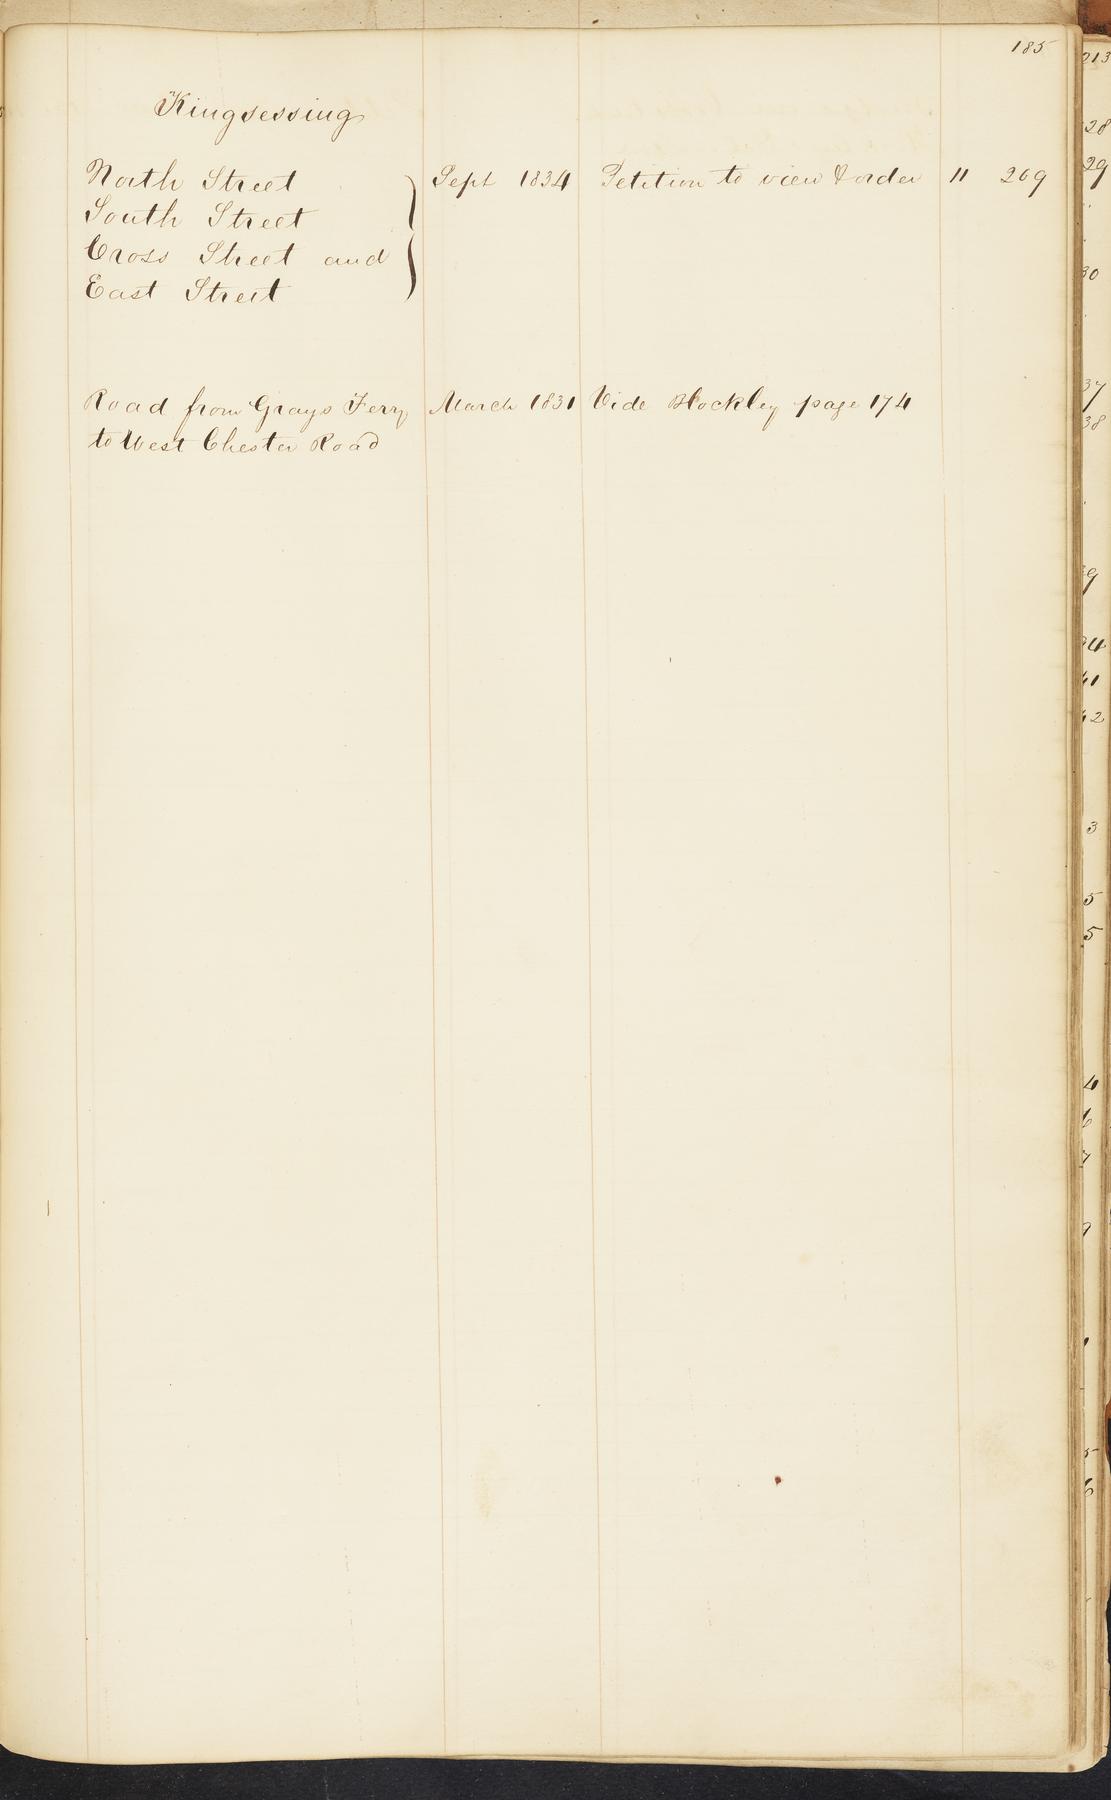 185
Kingsessing
North Street Sept 1834 Petition to view & order 11 269
South Street
Cross Street and
East Street
Road from Grays Ferry March 1831 Vide Blockley page 174
to West Chester Road
213
28
29
30
37
38
39
41
42
3
5
5
4
6
7
9
5
6